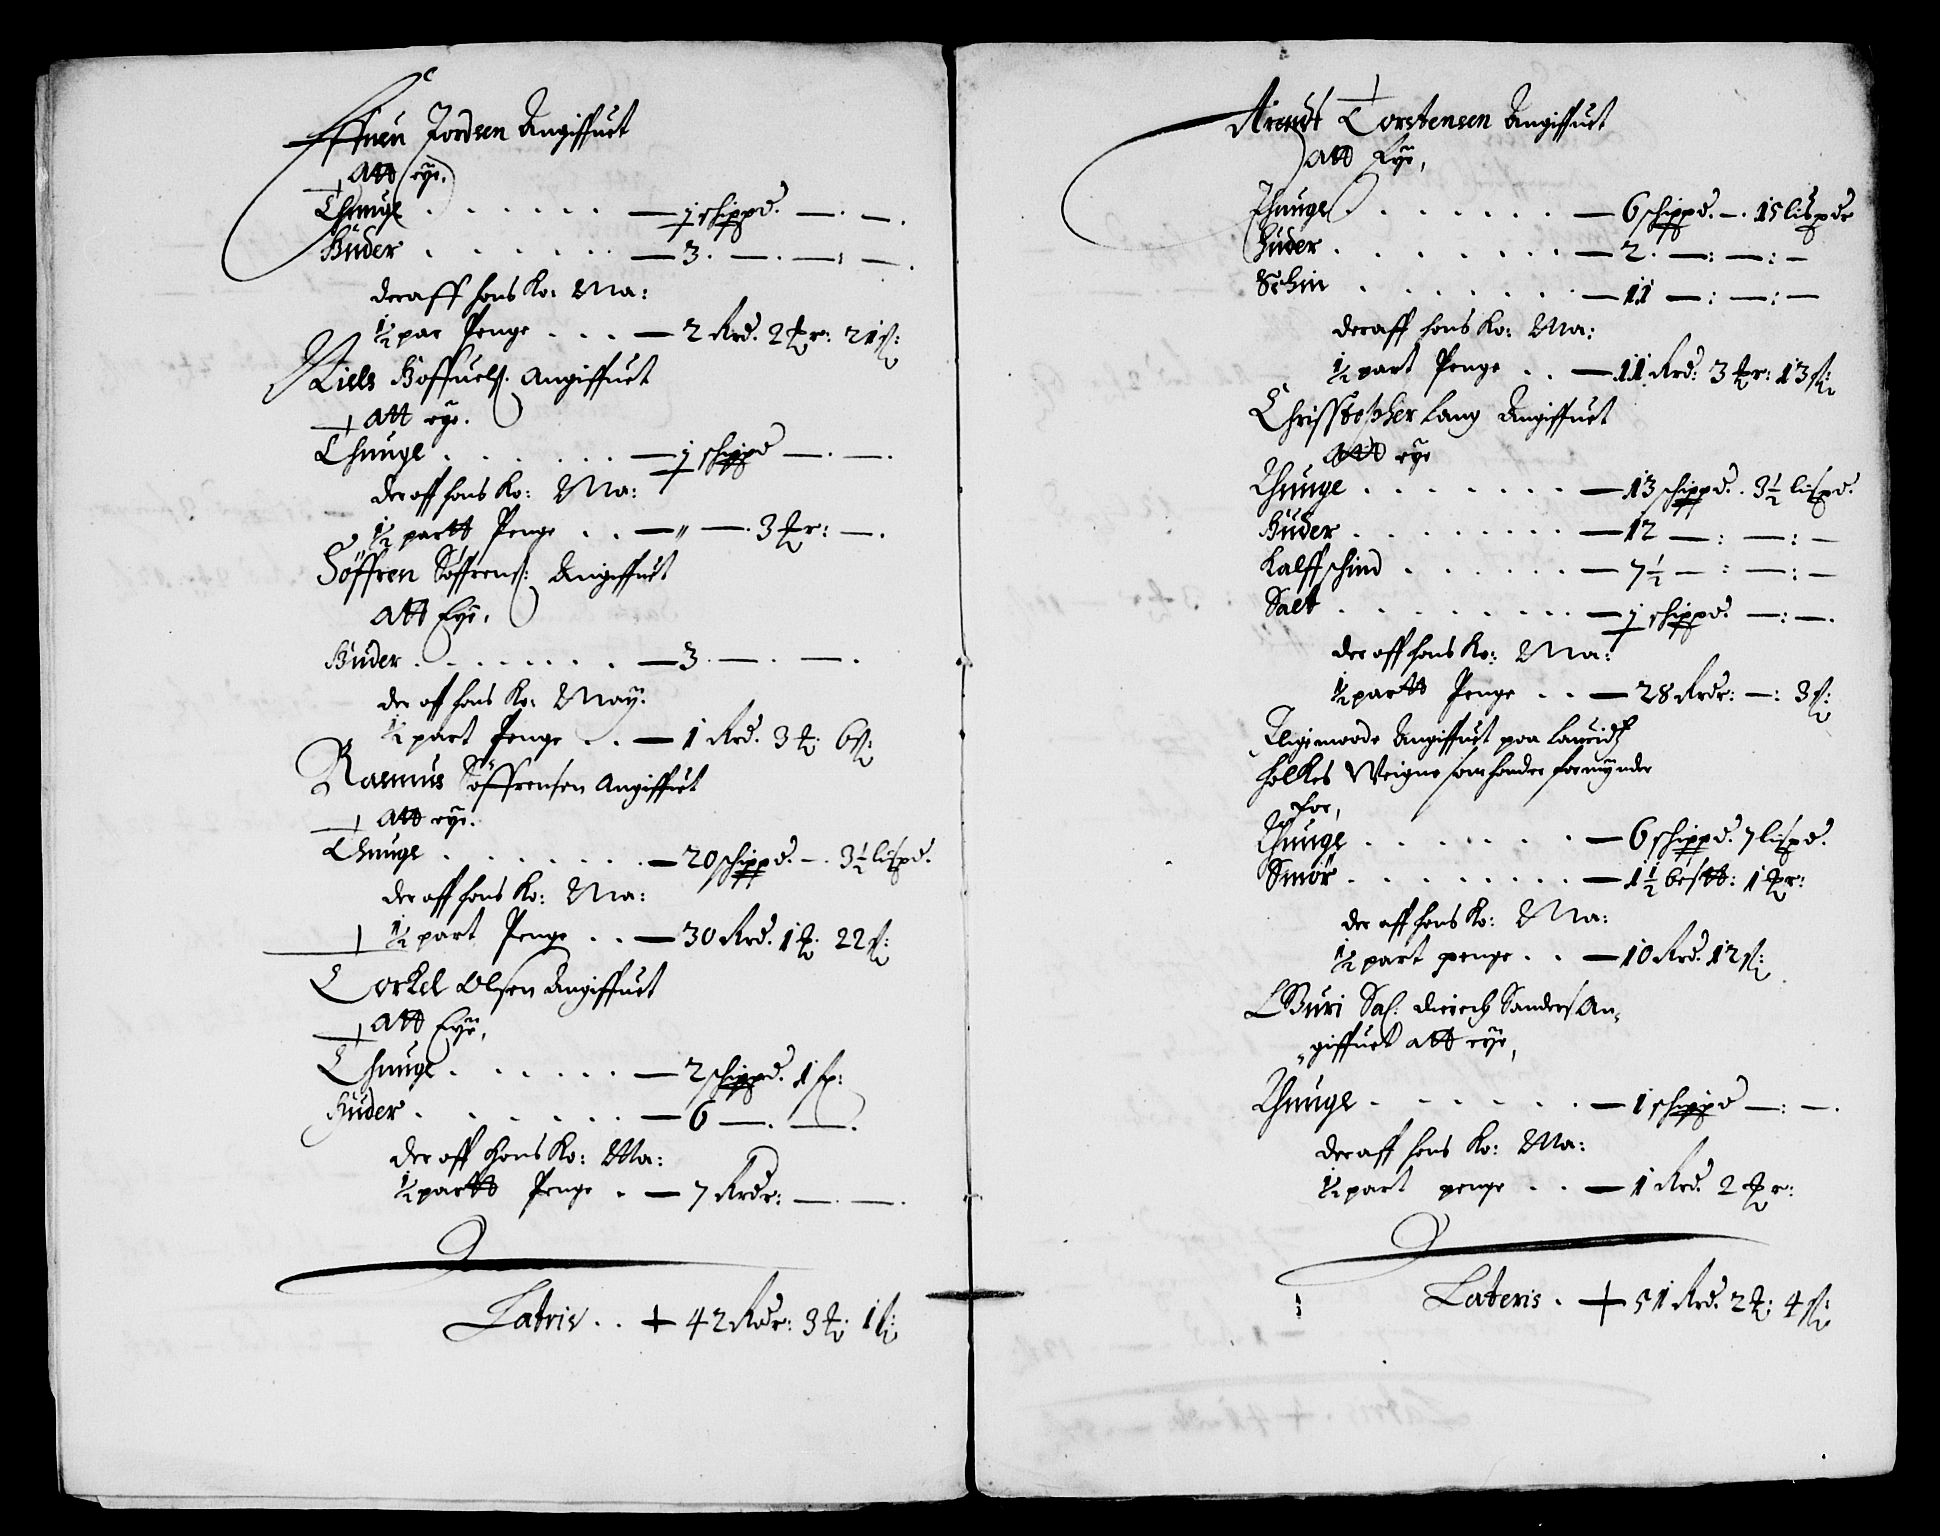 Effuen Jordsen Angiffuet
Att eye.
Thunge . . . . . . — 1 schippd. —. —.
Huder . . . . . . — 3. —. —: —.
deraff hans Ko: Ma:
½ par Penge . . . — 2 Rd. 2 ₰r: 21 ß:
Niels Boffuels. Angiffuet
Att eye.
Thunge . . . . . . — 1 schippd —. —.
der off hans Ko: Ma:
½ partt Penge . . — „ —. 3 ₰r: —.
Söffren Söffrens: Angiffuet
Att Eye.
Huder . . . . . . . — 3. —. —.
der off hans Ko: May.
½ part Penge . . — 1 Rd. 3 ₰. 6 ß:
Rasmus Söffrensen Angiffuet
Att eye.
Thunge . . . . . . . — 20 schippd. —. 3½ lispd.
der off hans Ko: Ma:
½ part Penge . . — 30 Rd. 1 ₰. 22 ß:
Torkel Olsen Angiffuet
Att Eye,
Thunge . . . . . . — 2 schippd. 1 sp:
Huder . . . . . . — 6 —. —.
der off hans Ko: Ma:
½ partt Penge . — 7 Rdr: —. —.
Latris . . + 42 Rdr: 3 ₰. 1 ß:
Arendt Torstensen Angiffuet
Att Eye,
Thunge . . . . . . — 6 schippd. —. 15 lispdr
Huder . . . . . . . — 2. —: —: —
Schin . . . . . . . — 11 —: —: —
deraff hans Ko: Ma:
½ part Penge . . — 11 Rd: 3 ₰r: 13 ß:
Chrisstopher Lang Angiffuet
Att eye
Thunge . . . . . . . — 13 schippd. . 3½ lispd.
Huder . . . . . . . . — 12 —: —: —
Kalffschind . . . . . . — 7½ —: —: —
Salt . . . . . . . . — 1 schippd. —: —.
der off hans Ko: Ma:
½ partt Penge . . — 28 Rdr: —: 3 ß:
Angiffuet paa Lauridtz
Holkes Weigne som hander formynder
for,
Thunge . . . . . . — 6 schippd. 7 lispd.
Smör . . . . . . . . — 1½ bestt: 1 ₰r:
der aff hans Ko: Ma:
½ part penge . . — 10 Rd. 12 ß:
Buri Sal. Diirich Sanders An„
„giffuet att eye,
Thunge . . . . . . — 1 schippd —: —.
deraff hans Ko: Ma:
½ part penge . . — 1 Rd. 2 ₰r:
Lateris . + 51 Rd. 2 ₰: 4 ß: